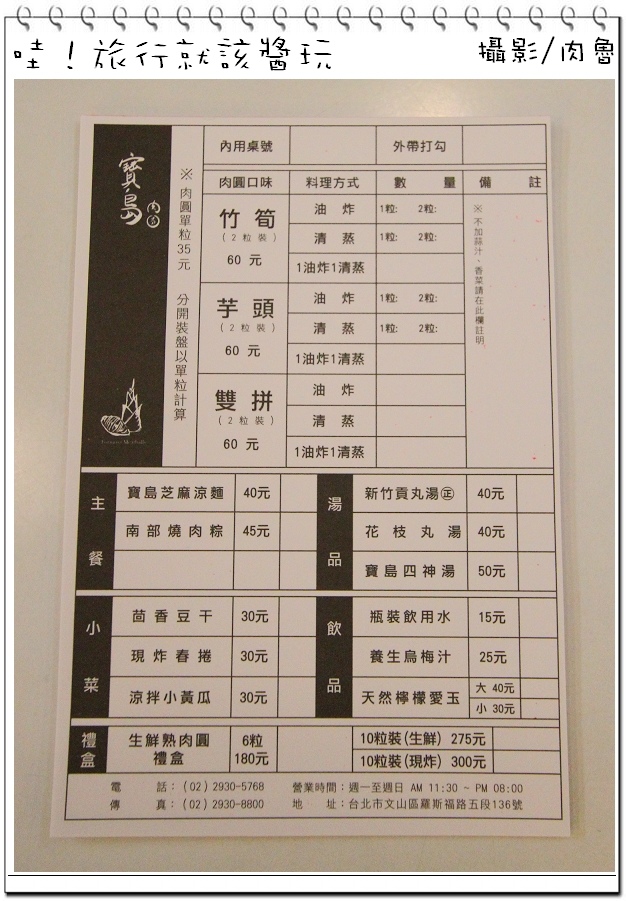 哇！旅行就該醬玩
攝影/肉魯
寶島肉圓
※ 肉圓單粒35元 分開裝盤以單粒計算
內用桌號 外帶打勾
肉圓口味 料理方式 數量 備註
竹筍
(2粒裝)
60 元
油炸 1粒: 2粒:
清蒸 1粒: 2粒:
1油炸1清蒸
芋頭
(2粒裝)
60 元
油炸 1粒: 2粒:
清蒸 1粒: 2粒:
1油炸1清蒸
雙拼
(2粒裝)
60 元
油炸
清蒸
1油炸1清蒸
※ 不加蒜汁、香菜請在此欄註明
主餐
寶島芝麻涼麵 40元
南部燒肉粽 45元
湯品
新竹貢丸湯㊣ 40元
花枝丸湯 40元
寶島四神湯 50元
小菜
茴香豆干 30元
現炸春捲 30元
涼拌小黃瓜 30元
飲品
瓶裝飲用水 15元
養生烏梅汁 25元
天然檸檬愛玉 大 40元
小 30元
禮盒
生鮮熟肉圓禮盒 6粒 180元
10粒裝(生鮮) 275元
10粒裝(現炸) 300元
電話：(02)2930-5768 營業時間：週一至週日 AM 11:30 ~ PM 08:00
傳真：(02)2930-8800 地址：台北市文山區羅斯福路五段136號